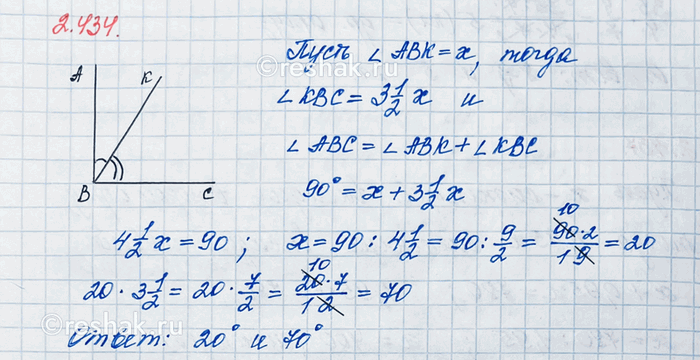 2.434.
Пусть ∠ ABK = x, тогда
∠ KBC = 3 1/2 x и
∠ ABC = ∠ ABK + ∠ KBC
90° = x + 3 1/2 x
A K
B C
4 1/2 x = 90 ; x = 90 : 4 1/2 = 90 : 9/2 = 10 90·2 / 1 9 = 20
20 · 3 1/2 = 20 · 7/2 = 10 20·7 / 1 2 = 70
Ответ: 20° и 70°
©reshak.ru